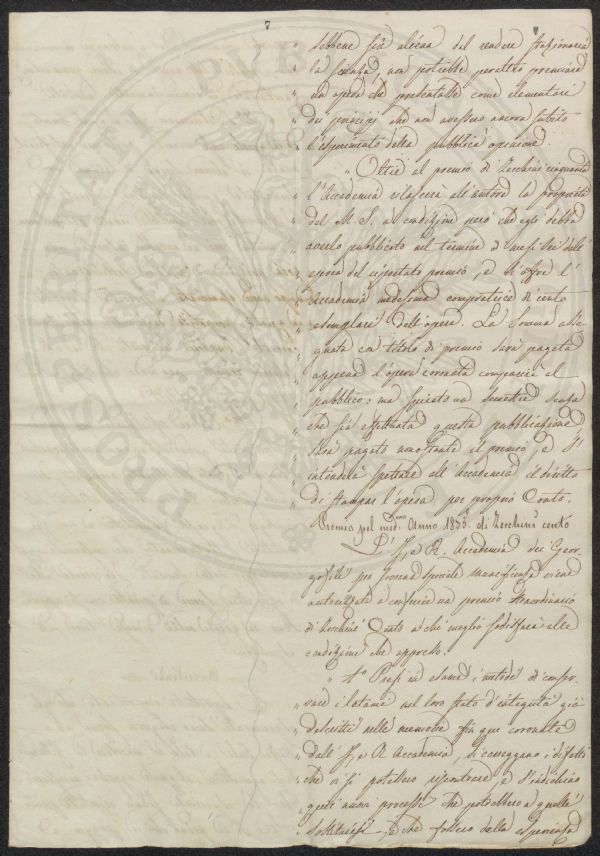 7
" sebbene sia aliena del rendere stazionaria
" la scienza, non potrebbe peraltro premiare
" un opera che presentasse come elementari
" dei principj che non avessero ancora subito
" l'esperimento della pubblica opinione.
" Oltre al premio di Zecchini cinquanta
" l'Accademia rilascerà all'autore la proprietà
" del M. S. a condizione però che egli debba
" averlo pubblicato nel termine di mesi sei dall'
" epoca del riportato premio, e si offre l'
" Accademia medesima compratrice di cento
" esemplari dell'opera. La Somma asse
" gnata con titolo di premio sarà pagata
" appena l'opera coronata comparirà al
" pubblico: ma spirato un semestre senza
" che sia effettuata questa pubblicazione
" sarà pagato nonostante il premio, e s'
" intenderà spettare all'Accademia il diritto
" di stampar l'opera per proprio Conto.
Premio pel med.mo Anno 1836. di Zecchini cento
" L'I. e R. Accademia dei Geor-
" gofili per Sovrana speciale munificenza viene
" autorizzata a conferire un premio straordinario
" di Zecchini Cento a chi meglio sodisfarà alle
" condizioni che appresso.
" 1.o Presi in esame i metodi di conser-
" vare i letami nel loro stato d'integrità già
" descritti nelle memorie fin qui coronate
" dall'I. e R. Accademia, si correggano i difetti
" che vi si potessero riscontrare, e s'indichino
" quei nuovi processi che potrebbero a quelli
" sostituirsi, e che fossero dalla esperienza